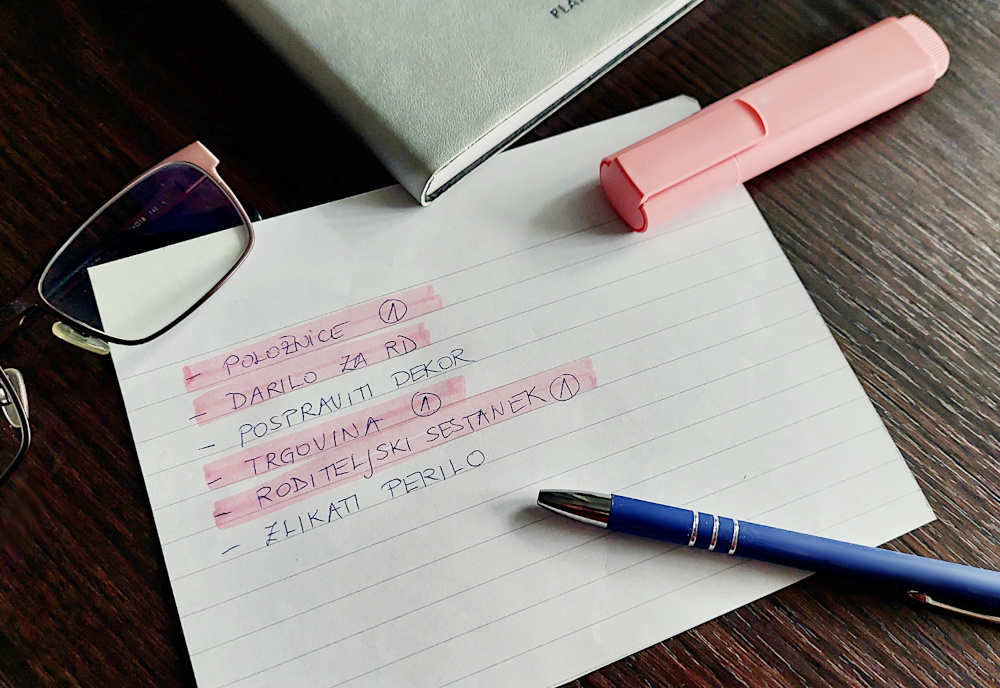 PLA
- POLOŽNICE ①
- DARILO ZA RD
- POSPRAVITI DEKOR
- TRGOVINA ①
- RODITELJSKI SESTANEK ①
- ZLIKATI PERILO